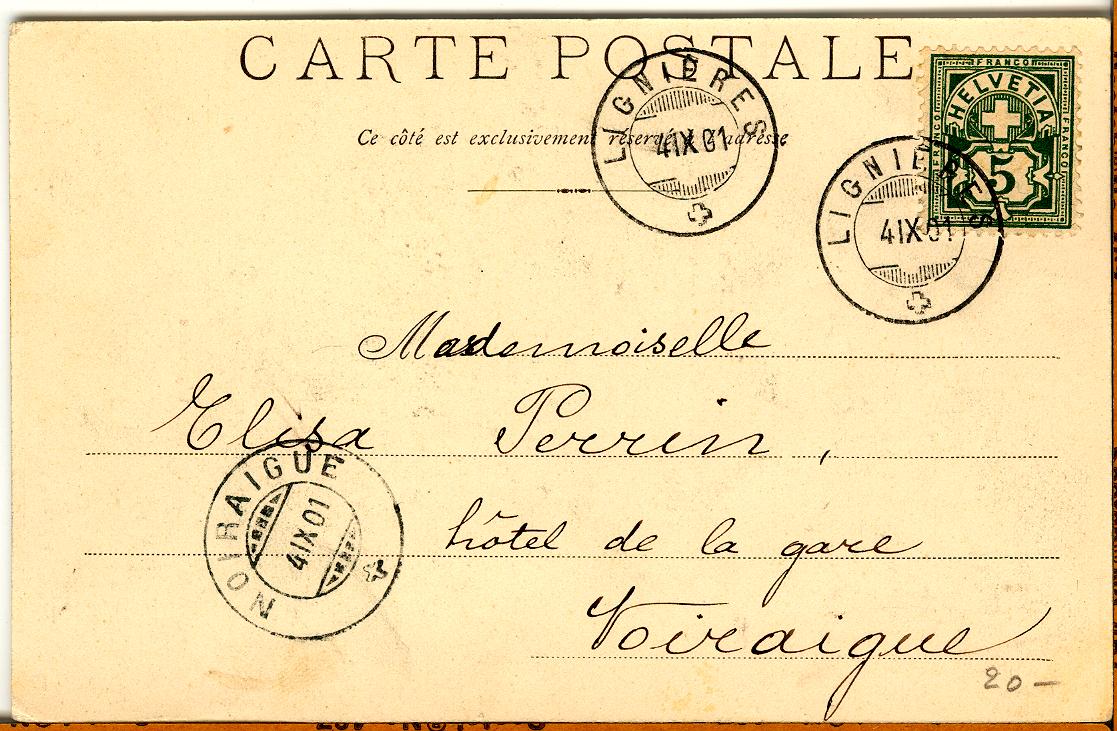 CARTE POSTALE
Ce côté est exclusivement réservé à l'adresse
LIGNIÈRES
4 IX 01
FRANCO
FRANCO
FRANCO
HELVETIA
5
LIGNIÈRES
4 IX 01
Mademoiselle
Elisa Perrin,
hôtel de la gare
Noiraigue
NOIRAIGUE
4 IX 01
20 —